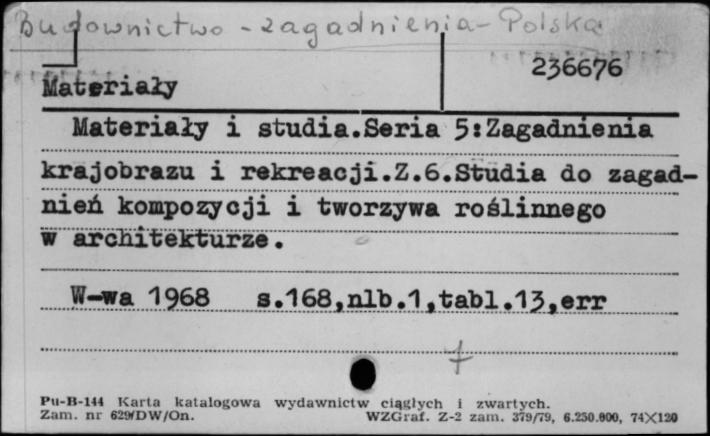 Budownictwo - zagadnienia - Polska
236676
Materiały
Materiały i studia.Seria 5:Zagadnienia
krajobrazu i rekreacji.Z.6.Studia do zagad-
nień kompozycji i tworzywa roślinnego
w architekturze.
W-wa 1968 s.168,nlb.1,tabl.13,err
Pu-B-144 Karta katalogowa wydawnictw ciągłych i zwartych.
Zam. nr 629/DW/On. WZGraf. Z-2 zam. 379/79, 6.250.000, 74X120